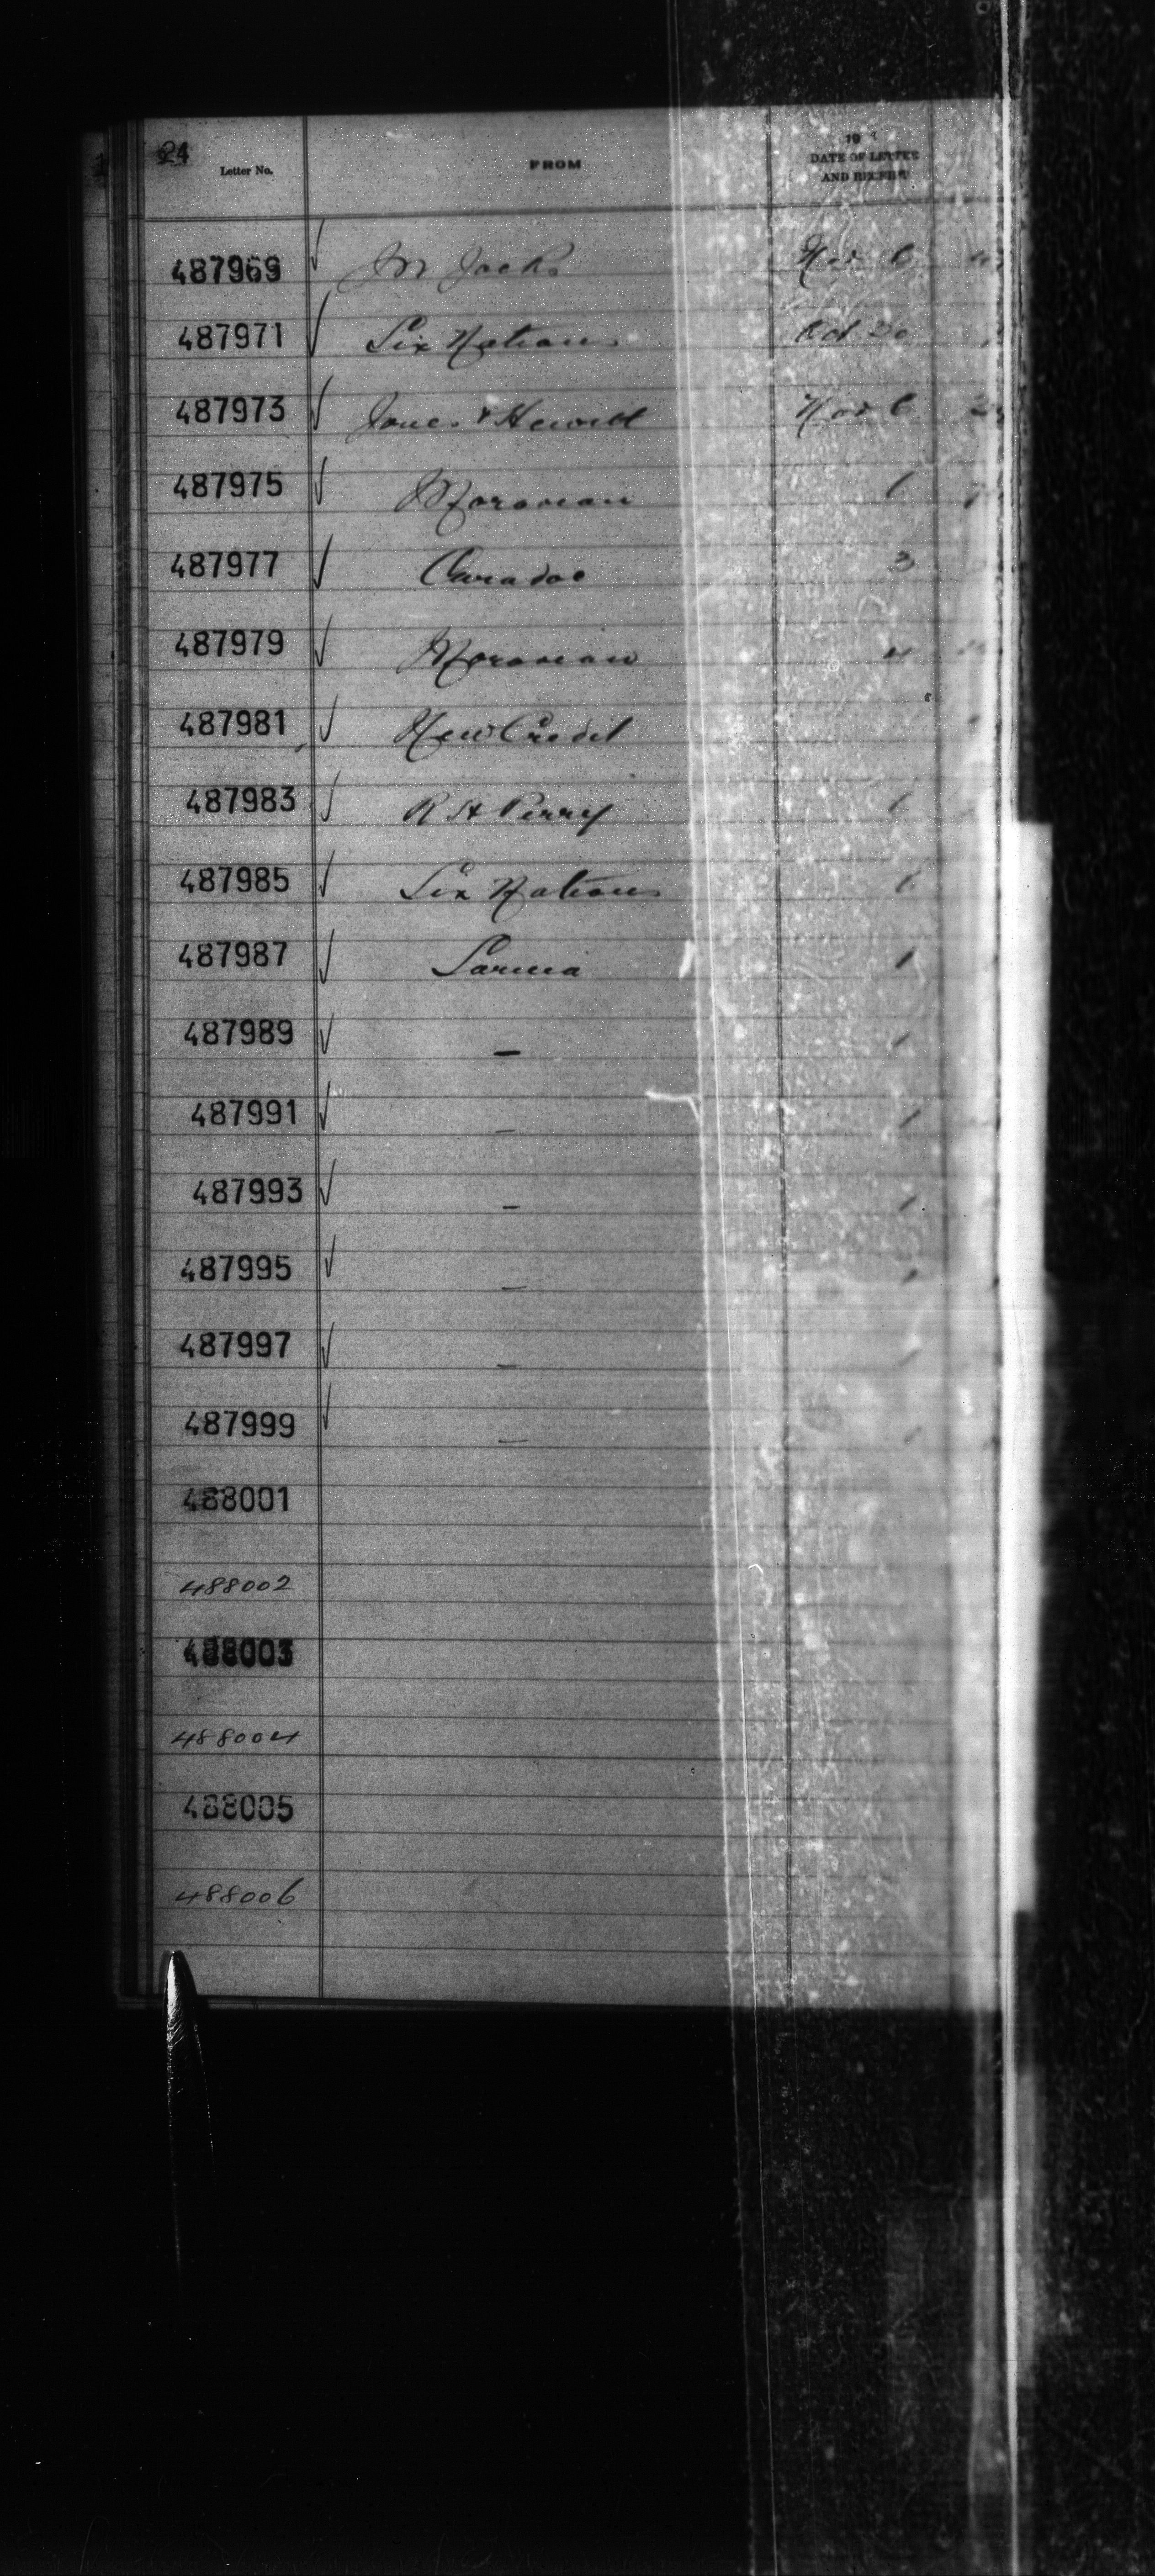 24
Letter No. FROM 19
DATE OF LETTER
AND RECEIPT
487969 ✓ M Jacks Nov 6
487971 ✓ Six Nations Oct 20
487973 ✓ Jones & Hewitt Nov 6
487975 ✓ Moravian 6
487977 ✓ Caradoc 3
487979 ✓ Moravian 4
487981 ✓ New Credit
487983 ✓ R H Perry 6
487985 ✓ Six Nations 6
487987 ✓ Sarnia 1
487989 ✓ —
487991 ✓ —
487993 ✓ —
487995 ✓ —
487997 ✓ —
487999 ✓ —
488001
488002
488003
488004
488005
488006